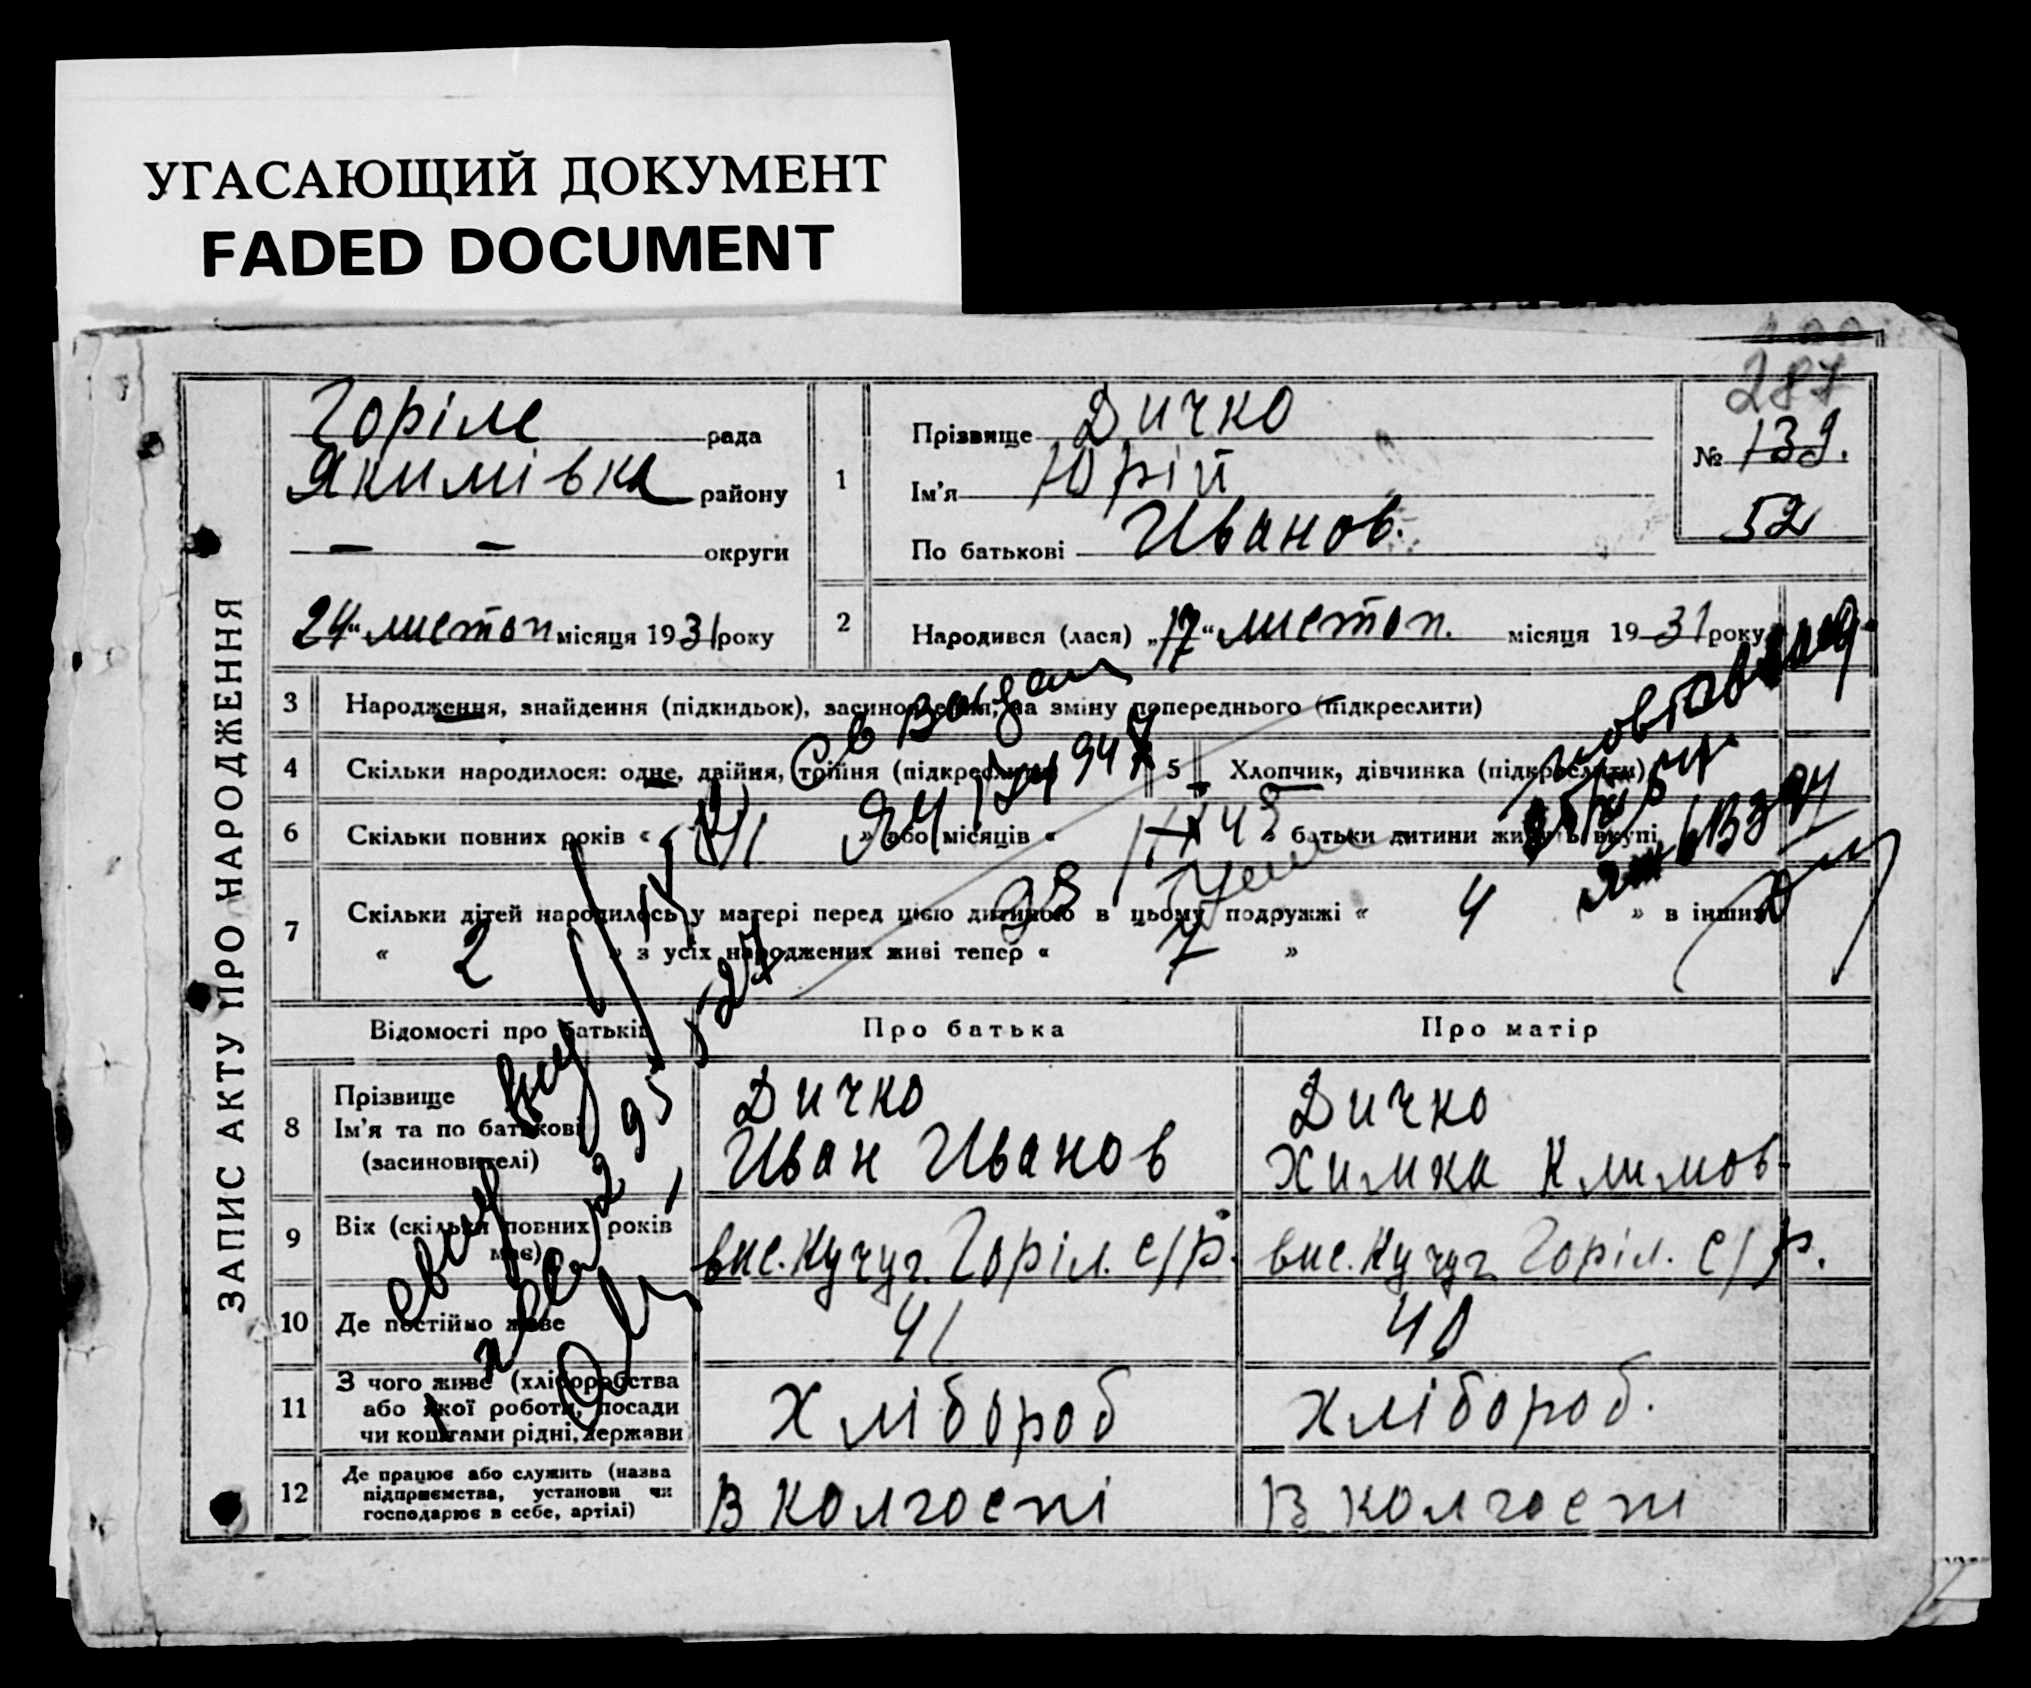 УГАСАЮЩИЙ ДОКУМЕНТ
FADED DOCUMENT
287
ЗАПИС АКТУ ПРО НАРОДЖЕННЯ
Горіле рада
Якимівка району
— — округи
24 " листоп місяця 1931 року
1
Прізвище Дичко
Ім'я Юрій
По батькові Иванов.
№ 139.
52
2 Народився (лася) „17" листоп. місяця 1931 року
3 Народження, знайдення (підкидьок), засиновлення, на зміну попереднього (підкреслити)
4 Скільки народилося: одне, двійня, трійня (підкреслити)
5 Хлопчик, дівчинка (підкреслити)
6 Скільки повних років « » або місяців « » батьки дитини живуть вкупі
7 Скільки дітей народилось у матері перед цією дитиною в цьому подружжі « 4 » в інших
« 2 » з усіх народжених живі тепер « 7 »
Відомості про батьків Про батька Про матір
8 Прізвище
Ім'я та по батькові
(засиновителі)
Дичко
Иван Иванов
Дичко
Химка Климов
9 Вік (скільки повних років
має)
вис. Кучуг. Горіл. с/р. вис. Кучуг Горіл. с/р.
10 Де постійно живе 41 40
11 З чого живе (хліборобства
або якої роботи, посади
чи коштами рідні, держави
Хлібороб Хлібороб.
12 Де працює або служить (назва
підприємства, установи чи
господарює в себе, артілі)
В колгоспі В колгосп